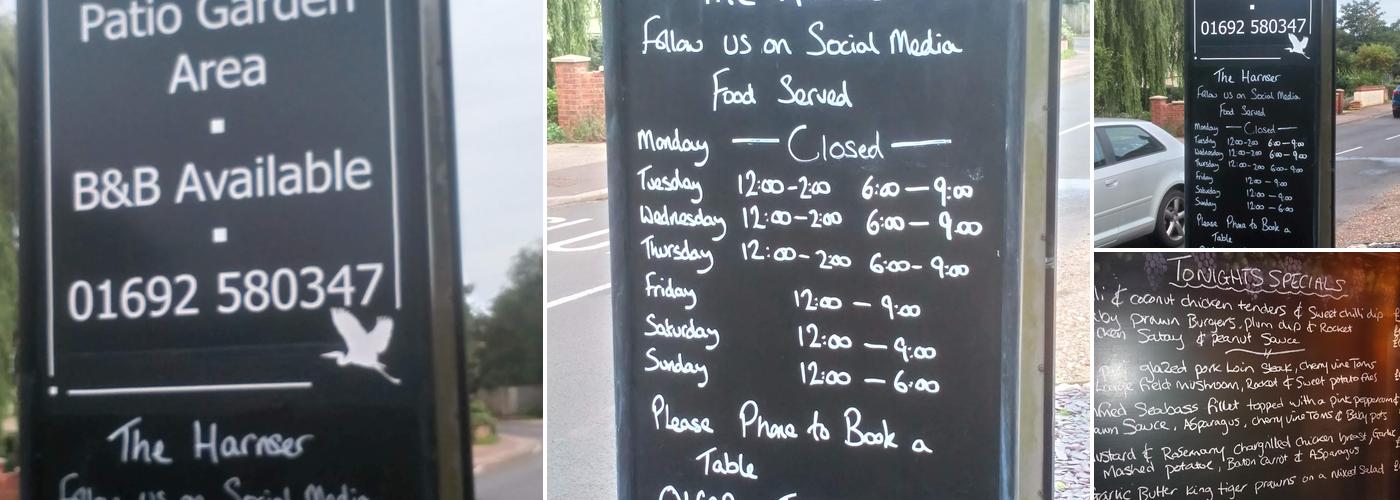 Patio Garden
Area
B&B Available
01692 580347
The Harnser
Follow us on Social Media
Follow us on Social Media
Food Served
Monday — Closed —
Tuesday 12:00-2:00 6:00-9:00
Wednesday 12:00-2:00 6:00-9:00
Thursday 12:00-2:00 6:00-9:00
Friday 12:00-9:00
Saturday 12:00-9:00
Sunday 12:00-6:00
Please Phone to Book a
Table
01692 580347
The Harnser
Follow us on Social Media
Food Served
Monday — Closed —
Tuesday 12:00-2:00 6:00-9:00
Wednesday 12:00-2:00 6:00-9:00
Thursday 12:00-2:00 6:00-9:00
Friday 12:00-9:00
Saturday 12:00-9:00
Sunday 12:00-6:00
Please Phone to Book a
Table
TONIGHTS SPECIALS
& coconut chicken tenders & Sweet chilli dip
Prawn Burgers, plum dip & Rocket
Satay & peanut Sauce
glazed pork Loin Steak, cherry vine Toms
Large field mushroom, Rocket & Sweet potato fries
Seabass fillet topped with a pink peppercorn &
Sauce, Asparagus, cherry vine Toms & Baby pots
& Rosemary chargrilled chicken breast, Garlic
Mashed potatoe, Baton Carrot & Asparagus
Butter King tiger prawns on a mixed Salad